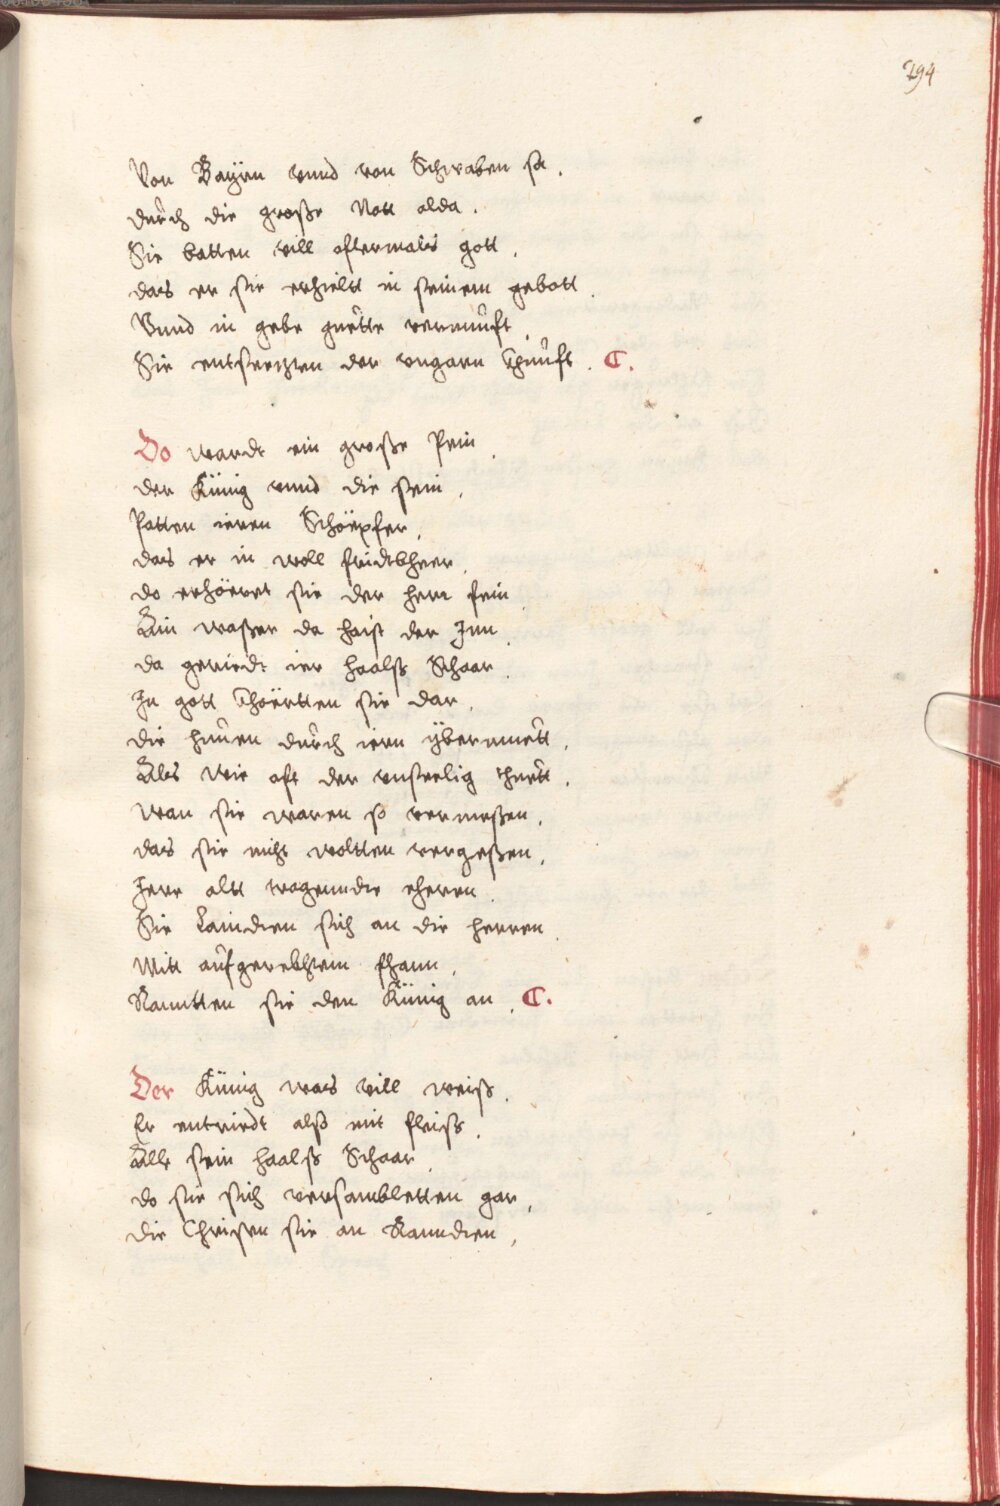 794
Von Bayrn vnnd von Schwaben sa.
durch die große Nott alda.
Sie batten vill oftermals gott,
das er sie erhieltt in seinem gebott.
Vnnd in gebe guette vernunft,
Sie entsetzten der vngarn Khunft. C.
Do wardt ein große Pein,
der Künig vnnd die sein,
Patten ieren Schöpfer,
das er in woll
do erhöeret sie der herr fein
Ain waßer da haist der Inn
da geriedt ier haalß Schaar.
In gott Khöertten sie dar,
die hunen durch iern ÿbermuett,
Als wie oft der vnseelig thuett,
wan sie waren so vermeßen,
das sie nicht woltten vergeßen,
Jerr altt
Sie Laindten sich an die herren
Mitt aufgerekhtem fhann,
Ranntten sie den Künig an. C.
Der Künig was vill weiß,
Er entriedt alß mit fleiß,
Alle sein haalß Schaar,
do sie sich versambletten gar,
die Christen sie an Ranndten,